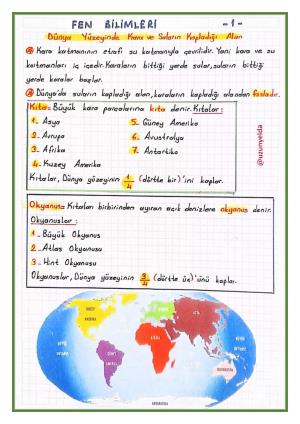 FEN BİLİMLERİ - 1 -
Dünya Yüzeyinde Kara ve Suların Kapladığı Alan
Kara katmanının etrafı su katmanıyla çevrilidir. Yani kara ve su
katmanları iç içedir. Karaların bittiği yerde sular, suların bittiği
yerde karalar başlar.
Dünya'da suların kapladığı alan, karaların kapladığı alandan fazladır.
Kıta= Büyük kara parçalarına kıta denir. Kıtalar:
1- Asya 5- Güney Amerika
2- Avrupa 6- Avustralya
3- Afrika 7- Antartika
4- Kuzey Amerika
Kıtalar, Dünya yüzeyinin 1/4 (dörtte bir)'ini kaplar.
@uzunyelda
Okyanus= Kıtaları birbirinden ayıran açık denizlere okyanus denir.
Okyanuslar:
1- Büyük Okyanus
2- Atlas Okyanusu
3- Hint Okyanusu
Okyanuslar, Dünya yüzeyinin 3/4 (dörtte üç)'ünü kaplar.
KUZEY
AMERİKA
AVRUPA
ASYA
AFRİKA
GÜNEY
AMERİKA
AVUSTRALYA
ANTARTİKA